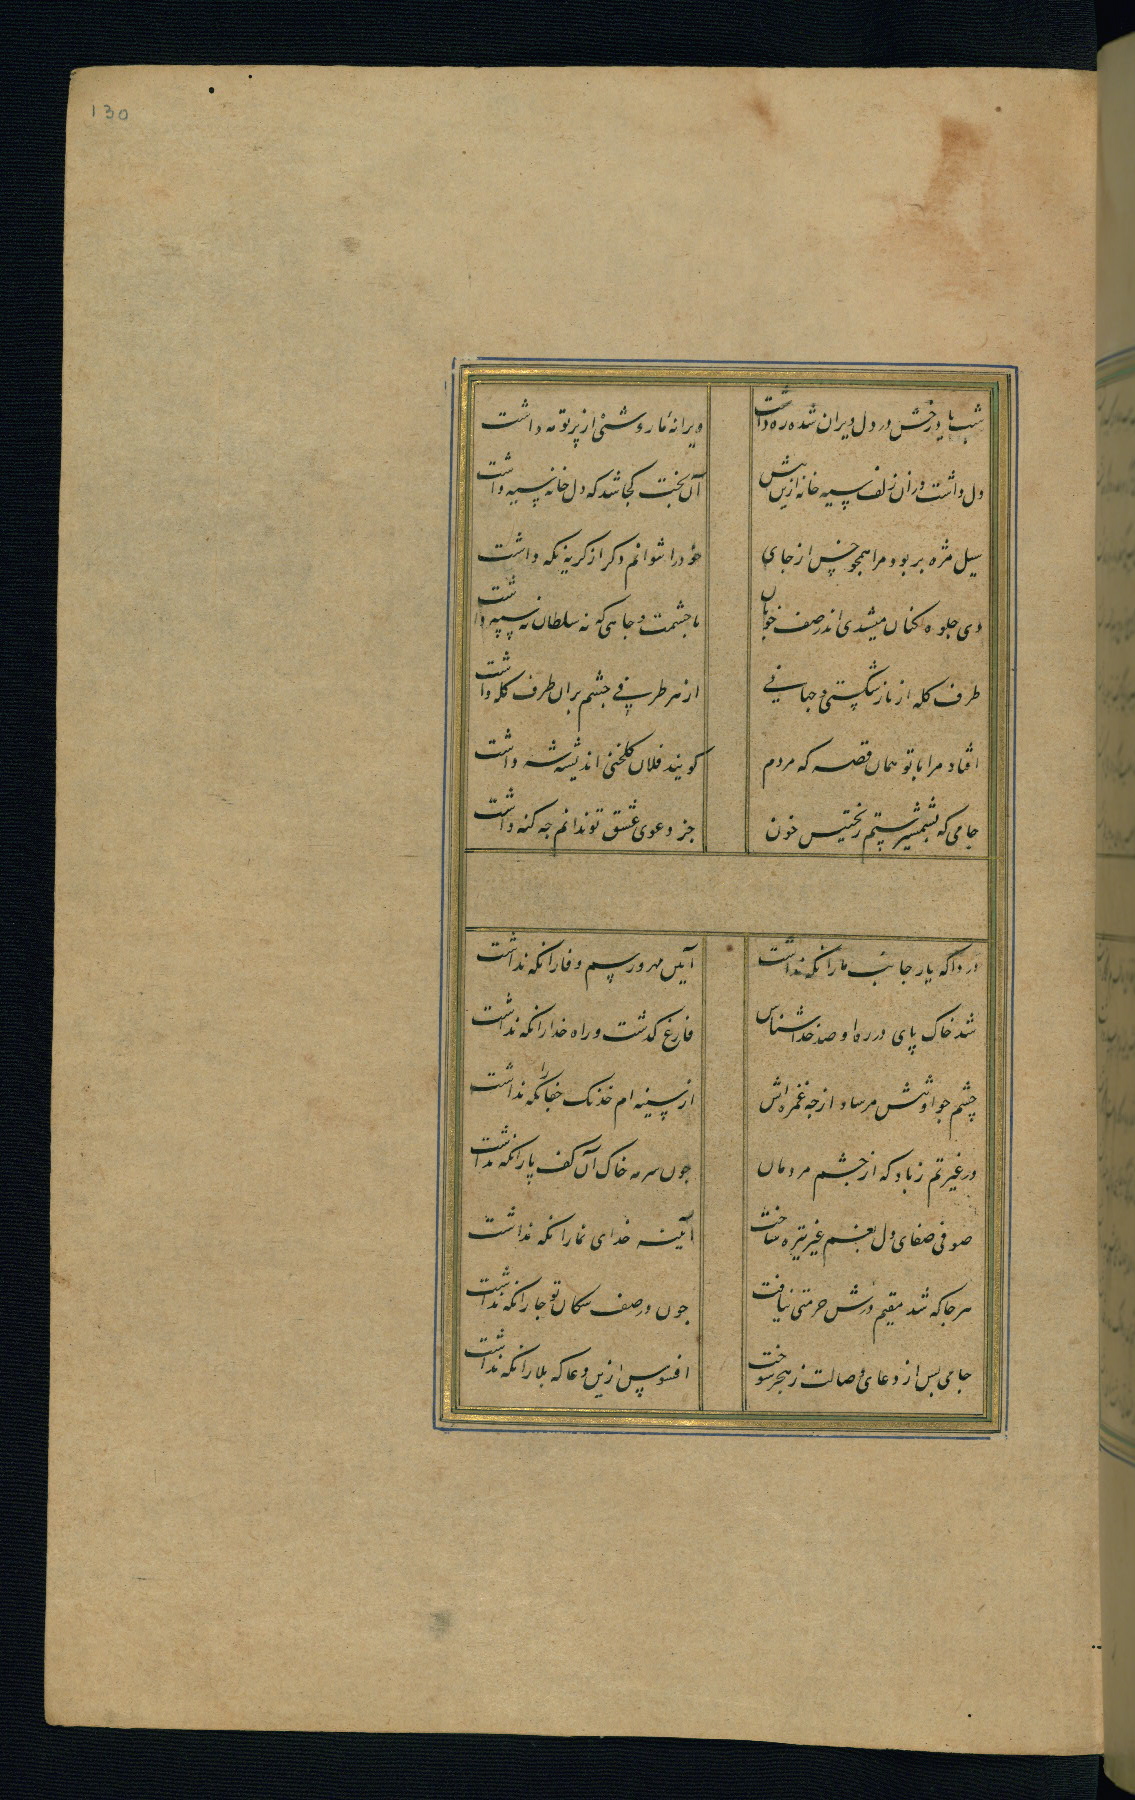 130
شب یاد رخش در دل ویران شده ره داشت
ویرانهٔ ما روشنی از پرتو مه داشت
دل داشت در آن زلف سیه خانه ازین پیش
آن بخت کجا شد که دل خانه سیه داشت
سیل مژه بربود مرا همچو خس از جای
خود را نتوانم دگر از گریه نگه داشت
دی جلوه کنان میشدی اندر صف خوبان
با حشمت و جاهی که نه سلطان نه سپه داشت
طرف کله از ناز شکستی و جهانی
از هر طرفی چشم بران طرف کله داشت
افتاد مرا با تو همان قصه که مردم
کویند فلان کلخنی اندیشه شه داشت
جامی که بشمشیر ستم ریختیش خون
جز دعوی عشق تو ندانم چه کنه داشت
دردا که یار جانب ما را نکه نداشت
آیین مهر و رسم وفا را نکه نداشت
شد خاک پای در ره او صد خداشناس
فارغ کذشت و راه خدا را نکه نداشت
چشم خوشش مرساد از چه غمزه اش
از سینه ام خدنک جفا را نکه نداشت
در غیرتم ز باد که از چشم مردمان
چون سرمه خاک آن کف پا را نکه نداشت
صوفی صفای دل بغم غیر تیره ساخت
آئینه خدای نما را نکه نداشت
هر جا که شد مقیم درش حرمتی نیافت
چون در صف سکان تو جا را نکه نداشت
جامی پس از دعای وصالت ز هجر سوخت
افسوس ازین دعا که بلا را نکه نداشت